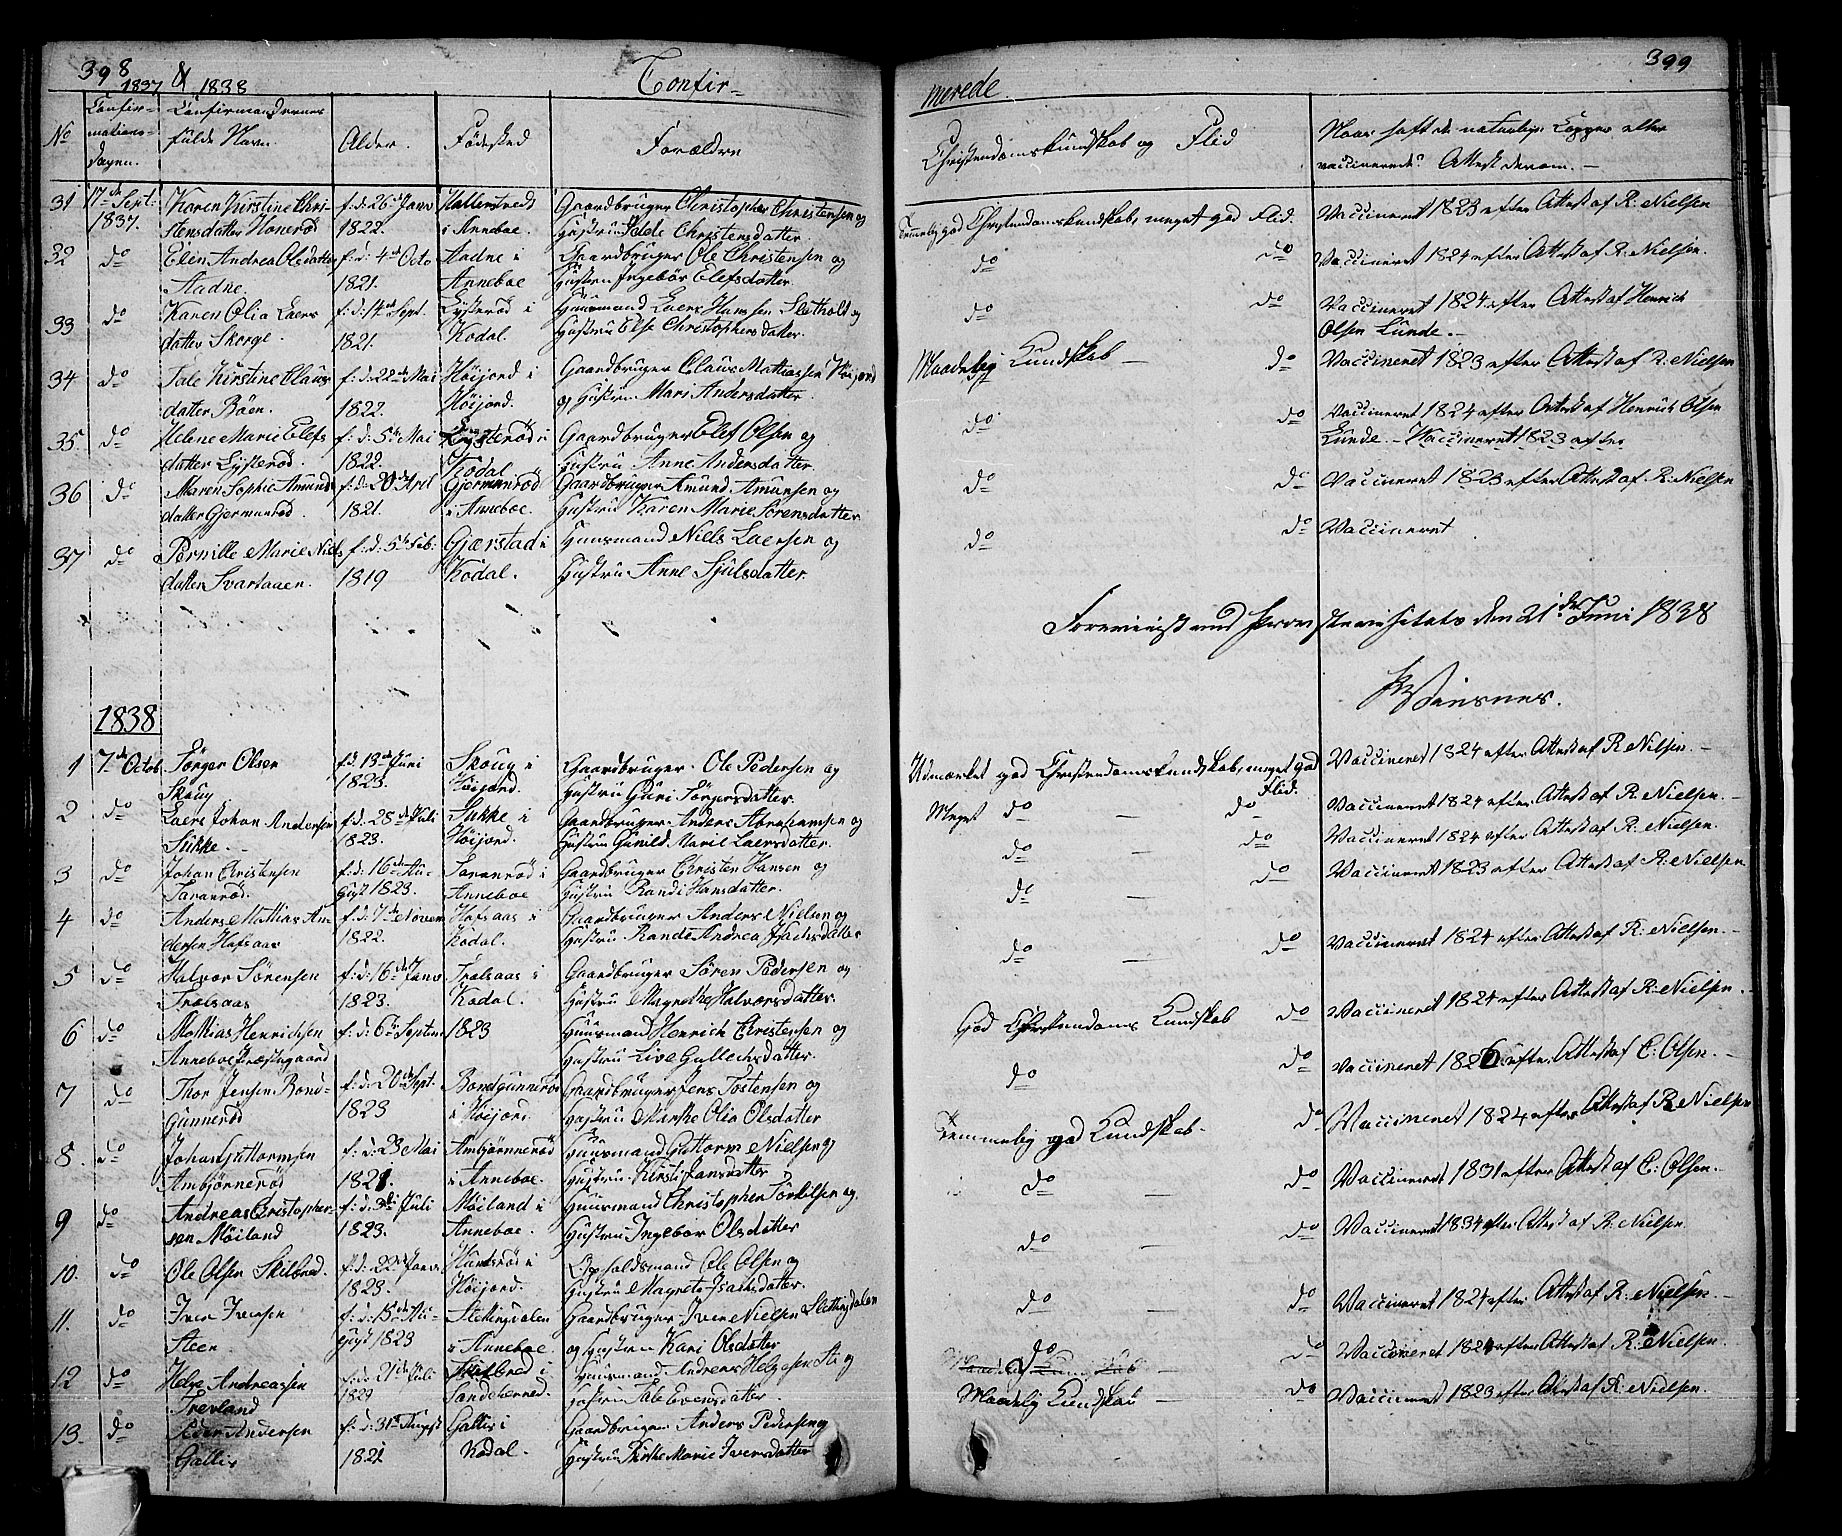 398
1837 & 1838
Confir-
No
Confir-
mations-
dagen.
Confirmandernes
fulde Navn.
Alder.
Fødested
Forældre
31 17de Sept: 1837. Karen Kirstine Chri- f. d. 26de Janv Hallenstvedt Gaardbruger Christopher Christensen og
stensdatter Honerød 1822. i Anneboe. Hustru Christensdatter.
32 do Elen Andrea Olsdatter f. d. 4de Octo Aadne i Gaardbruger Ole Christensen og
Aadne. 1821. Anneboe Hustru Ingebör Elefsdatter.
33 do Karen Olia Laers f. d. 14de Sept. Lysterød i Huusmand Laers Hansen Slethold og
datter Skorge. 1821. Kodal. Hustru Else Christophersdatter.
34 do Tale Kirstine Claus f. d. 22de Mai Höijord i Gaardbruger Claus Mathiassen Höijord
datter Böen. 1822. Höijord. og Hustru Mari Andersdatter.
35 do Helene Marie Elefs f. d. 5te Mai Lysterød i Gaardbruger Elef Olsen og
datter Lysterød. 1822. Kodal. Hustru Anne Andersdatter.
36 do Maren Sophie Amunds f. d. 20de Gjermunrød Gaardbruger Amund Amunsen og
datter Gjermunrød 1821. i Anneboe. Hustru Karen Marie Sörensdatter
37 do Pernille Marie Niels f. d. 5te Feb: Gjærstad i Huusmand Niels Laersen og
datter Svartaaen. 1819 Kodal. Hustru Anne Sjulsdatter.
1838
1 7de Octob. Jörgen Olsen f d 13de Juni Skoug i Gaardbruger Ole Pedersen og
Skoug 1823. Höijord. Hustru Guri Jörgensdatter.
2 do Laers Johan Andersen f. d. 28de Juli Sukke i Gaardbruger Anders Abrahamsen og
Sukke. 1823. Höijord. Hustru Gunild Marie Laersdatter.
3 do Johan Christensen f. d. 16de Au- Taranrød i Gaardbruger Christen Hansen og
Taranrød. gust 1823. Anneboe Hustru Randi Hansdatter.
4 do Anders Mathias An f. d. 7de Novem Hafsaas i Gaardbruger Anders Nielsen og
dersen Hafsaas 1822. Kodal. Hustru Rande Andrea Isachsdatter
5 do Halvor Sörensen f. d. 16de Janv. Trolsaas i Gaardbruger Sören Pedersen og
Trolsaas 1823. Kodal. Hustru Magrethe Halvorsdatter.
6 do Mathias Henrichsen f. d. 6te Septem 1823 Huusmand Henrich Christensen og
Anneboe Præstegaard Hustru Live Gulleichsdatter.
7 do Thor Jensen Bond- f. d. 20de Sept. Bondgunnerød Gaardbruger Jens Tostensen og
gunnerød 1823 i Höijord. Hustru Marthe Olia Olsdatter
8. do Johan Guttormsen f. d. 23de Mai Ambjörnerød Huusmand Guttorm Nielsen og
Ambjörnerød 1821. i Anneboe. Hustru Kirsti Jansdatter
9 do Andreas Cristopher- f. d. 3de Juli Möiland i Huusmand Christopher Torkilsen og
sen Möiland 1823. Anneboe. Hustru Ingebor Olsdatter
10. do Ole Olsen Skilbred. f. d. 22de Janv. i Opholdsmand Ole Olsen og
1823. Höijord. Hustru Magrete Isachsdatter.
11. do Iver Iversen f. d. 15de Au- Slettingdalen Gaardbruger Iver Nielsen Slettingdalen
Steen gust 1823 i Anneboe. og Hustru Kari Olsdatter
12 do Helge Andreassen f. d. 21de Juli i Huusmand Andreas Helgesen og
Trevland Sandeherred. Hustru Tale Evensdatter.
13. do Peder Andersen f. d. 31te August Gallis i Gaardbruger Anders Pedersen og
Gallis 1821 Kodal. Hustru Kirstie Marie Iversdatter
399
merede.
Christendomskundskab og Flid
Naar haft de naturlige Copper eller
vaccinerede? Attest derom. —
Temmelig god Christendomskundskab, meget god Flid. Vaccineret 1823 efter Attest af R. Nielsen
do do Vaccineret 1824 efter Attest af R: Nielsen.
do do Vaccineret 1824 efter Attest af Henrich
Olsen Lunde. —
Maadelig Kundskab — do Vaccineret 1823 efter Attest af R: Nielsen
do do Vaccineret 1824 efter Attest af Henrich Olsen
Lunde. — Vaccineret 1823 efter
do do Vaccineret 1823 efter Attest af R: Nielsen
do do Vaccineret
Foreviist ved Provstevisitats den 21de Juni 1838
Winsnes.
Udmærket god Christendomskundskab, meget god Flid. Vaccineret 1824 efter Attest af R Nielsen. —
Meget do — do Vaccineret 1824 efter Attest af R: Nielsen. —
do — do Vaccineret 1824 efter Attest af R: Nielsen.
do do Vaccineret 1823 efter Attest af R: Nielsen
do — do Vaccineret 1824 efter Attest af R: Nielsen. —
God Christendoms Kundskab do Vaccineret 1824 efter Attest af R: Nielsen. —
do do Vaccineret 1826 efter Attest af C: Olsen. —
Temmelig god Kundskab. do Vaccineret 1824 efter Attest af R Nielsen
do — do Vaccineret 1831 efter Attest af C: Olsen. —
do — do Vaccineret 1834 efter Attest af R: Nielsen
do — do Vaccineret 1824 efter Attest af R: Nielsen. —
do do Vaccineret 1824 efter Attest af R: Nielsen.
Maadelig Kundskab — do Vaccineret 1823 efter Attest af R: Nielsen.